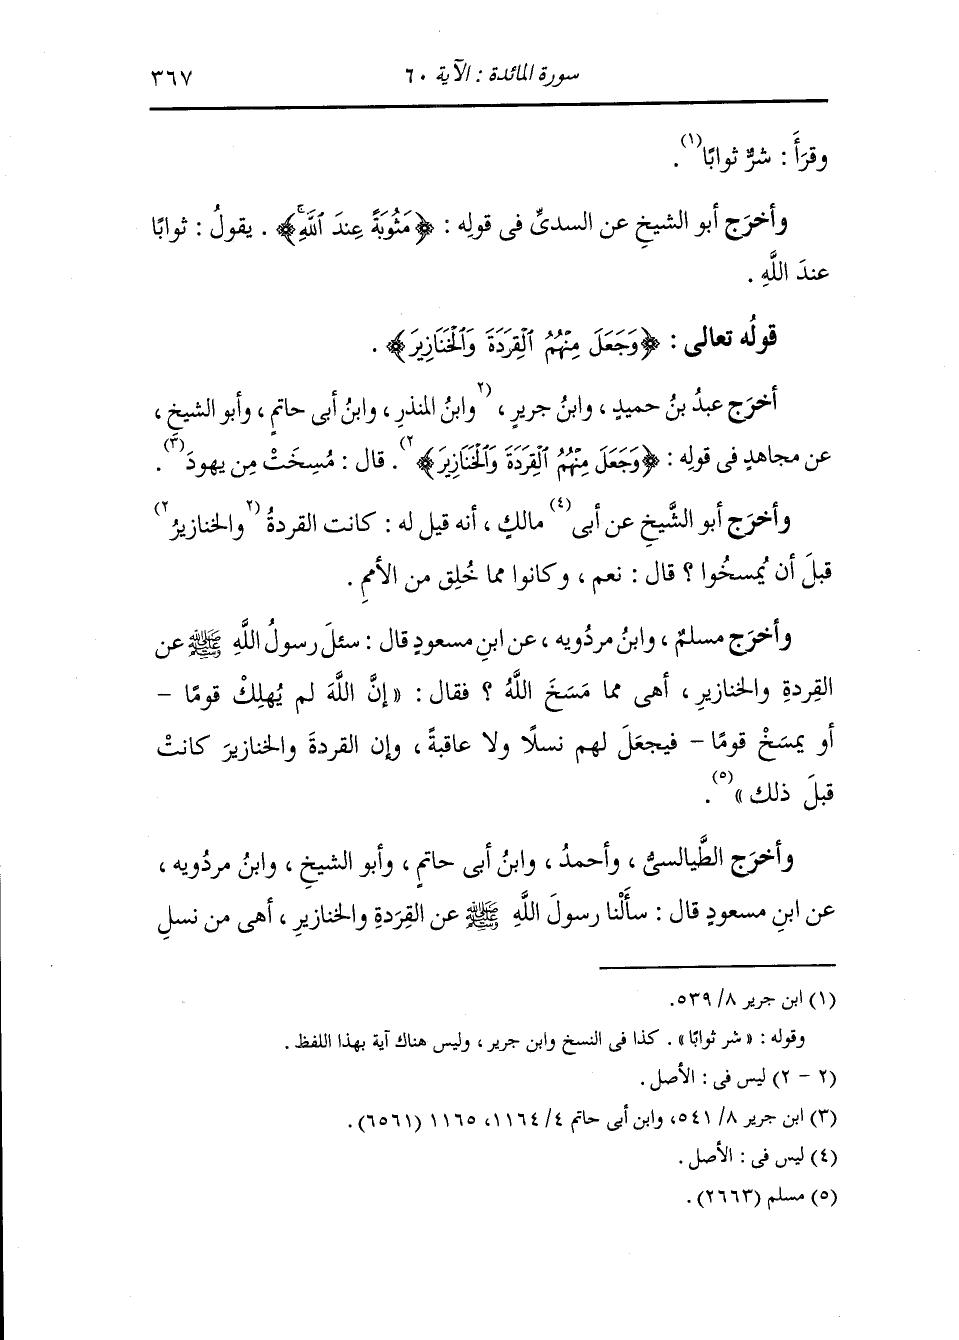 سورة المائدة : الآية ٦٠ ٣٦٧
وقرَأ : شرٌّ ثوابًا(١).
وأخرَج أبو الشيخِ عن السدىِّ فى قولِه : ﴿مَثُوبَةً عِندَ ٱللَّهِۚ﴾ . يقولُ : ثوابًا
عندَ اللَّهِ .
قولُه تعالى : ﴿وَجَعَلَ مِنْهُمُ ٱلْقِرَدَةَ وَٱلْخَنَازِيرَ﴾ .
أخرَج عبدُ بنُ حميدٍ ، وابنُ جريرٍ ، (٢وابنُ المنذرِ ، وابنُ أبى حاتمٍ ، وأبو الشيخِ ،
عن مجاهدٍ فى قولِه : ﴿وَجَعَلَ مِنْهُمُ ٱلْقِرَدَةَ وَٱلْخَنَازِيرَ﴾٢) . قال : مُسِخَتْ مِن يهودَ(٣).
وأخرَج أبو الشَّيخِ عن أبى(٤) مالكٍ ، أنه قيل له : كانت القردةُ (٢والخنازيرُ٢)
قبلَ أن يُمسخُوا ؟ قال : نعم ، وكانوا مما خُلِق من الأممِ .
وأخرَج مسلمٌ ، وابنُ مردُويه ، عن ابنِ مسعودٍ قال : سئلَ رسولُ اللَّهِ ﷺ عن
القِردةِ والخنازيرِ ، أهى مما مَسَخَ اللَّهُ ؟ فقال : « إنَّ اللَّهَ لم يُهلِكْ قومًا –
أو يمسَخْ قومًا – فيجعَلَ لهم نسلًا ولا عاقبةً ، وإن القردةَ والخنازيرَ كانتْ
قبلَ ذلك »(٥).
وأخرَج الطَّيالسىُّ ، وأحمدُ ، وابنُ أبى حاتمٍ ، وأبو الشيخِ ، وابنُ مردُويه ،
عن ابنِ مسعودٍ قال : سأَلْنا رسولَ اللَّهِ ﷺ عن القِرَدةِ والخنازيرِ ، أهى من نسلِ
(١) ابن جرير ٨/ ٥٣٩.
وقوله : « شر ثوابًا » . كذا فى النسخ وابن جرير ، وليس هناك آية بهذا اللفظ .
(٢ – ٢) ليس فى : الأصل .
(٣) ابن جرير ٨/ ٥٤١، وابن أبى حاتم ٤/ ١١٦٤، ١١٦٥ (٦٥٦١) .
(٤) ليس فى : الأصل .
(٥) مسلم (٢٦٦٣) .